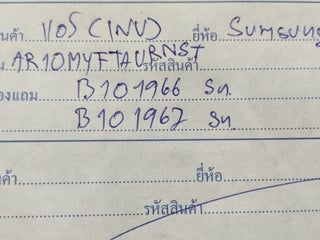 นค้า แอร์ (INV) ยี่ห้อ Sumsung
AR10MYFTAURNST รหัสสินค้า
องแถม B101966 Sn.
B101967 Sn.
นค้า ยี่ห้อ
รหัสสินค้า